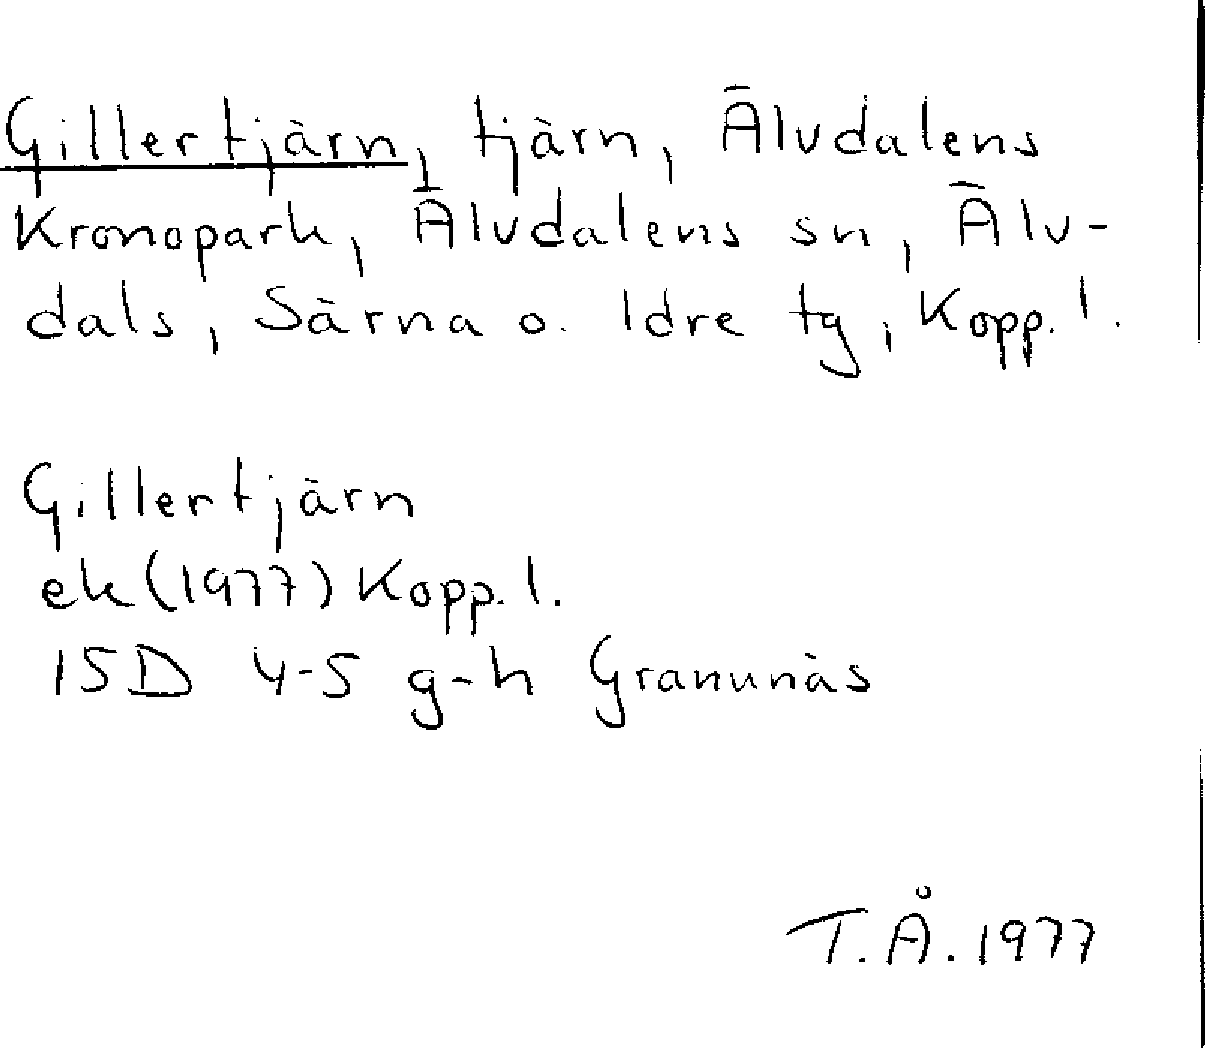 Gillertjärn, tjärn, Älvdalens
Kronopark, Älvdalens sn, Älv-
dals, Särna o. Idre tg, Kopp. l.
Gillertjärn
ek (1977) Kopp. l.
15D 4-5 g-h Granunäs
T.Å. 1977